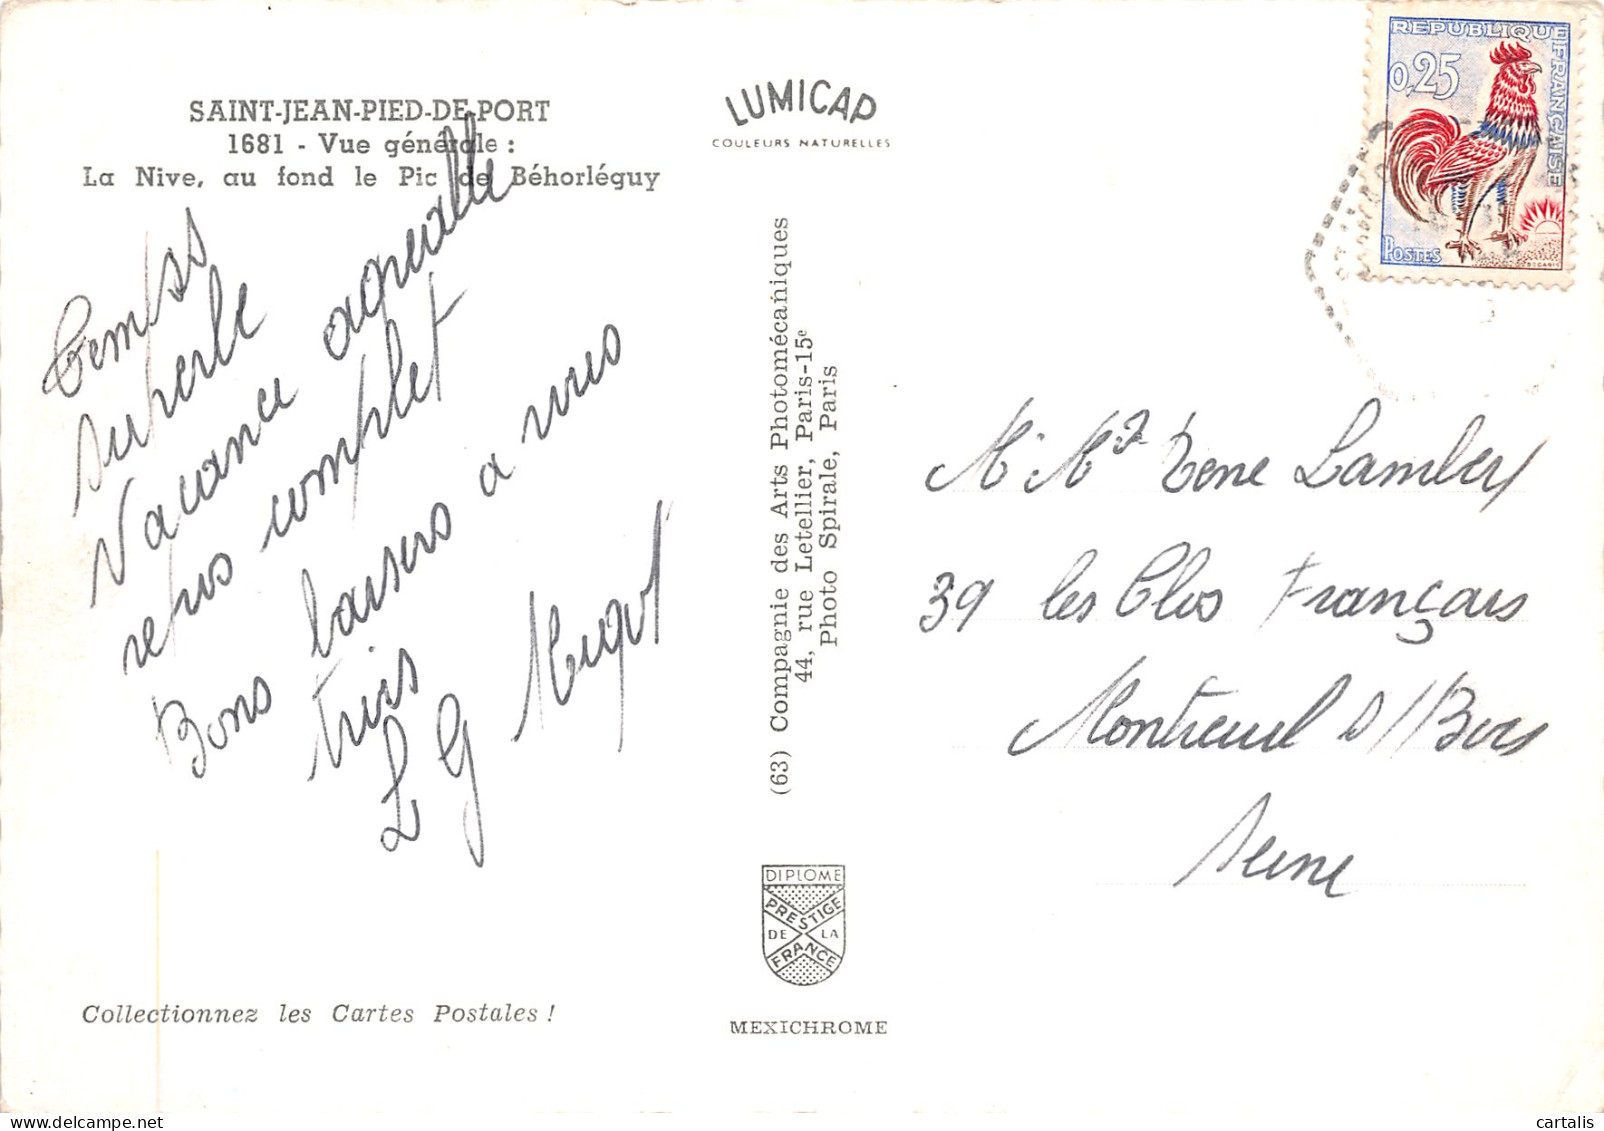 SAINT-JEAN-PIED-DE-PORT
1681 - Vue générale :
La Nive, au fond le Pic de Béhorléguy
Temps
superbe
Vacance agréable
repos complet
Bons baisers a vous
trois
L G
LUMICAP
COULEURS NATURELLES
(63) Compagnie des Arts Photomécaniques
44, rue Letellier, Paris-15e
Photo Spirale, Paris
DIPLOME
PRESTIGE
DE LA
FRANCE
MEXICHROME
Collectionnez les Cartes Postales !
REPUBLIQUE FRANÇAISE
0,25
POSTES
DECARIS
39 les Clos Français
Montreuil s/Bois
Seine
cartalis